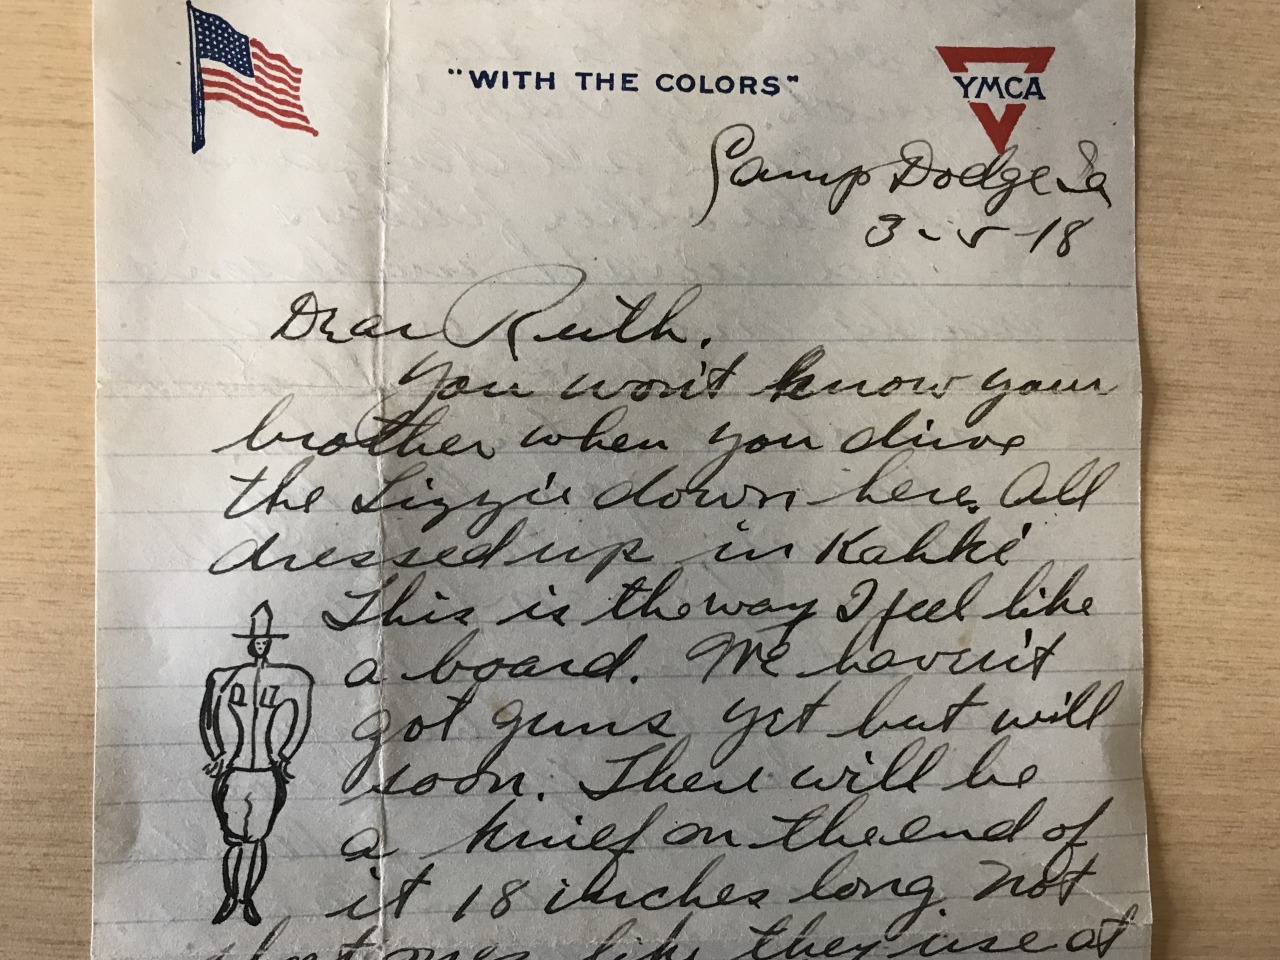 "WITH THE COLORS"
YMCA
Camp Dodge Ia
3-5-18
Dear Ruth.
You won't know your
brother when you drive
the Lizzie down here. All
dressed up in Kahki
This is the way I feel like
a board. We haven't
got guns yet but will
soon. There will be
a knief on the end of
it 18 inches long not
short ones like they use at